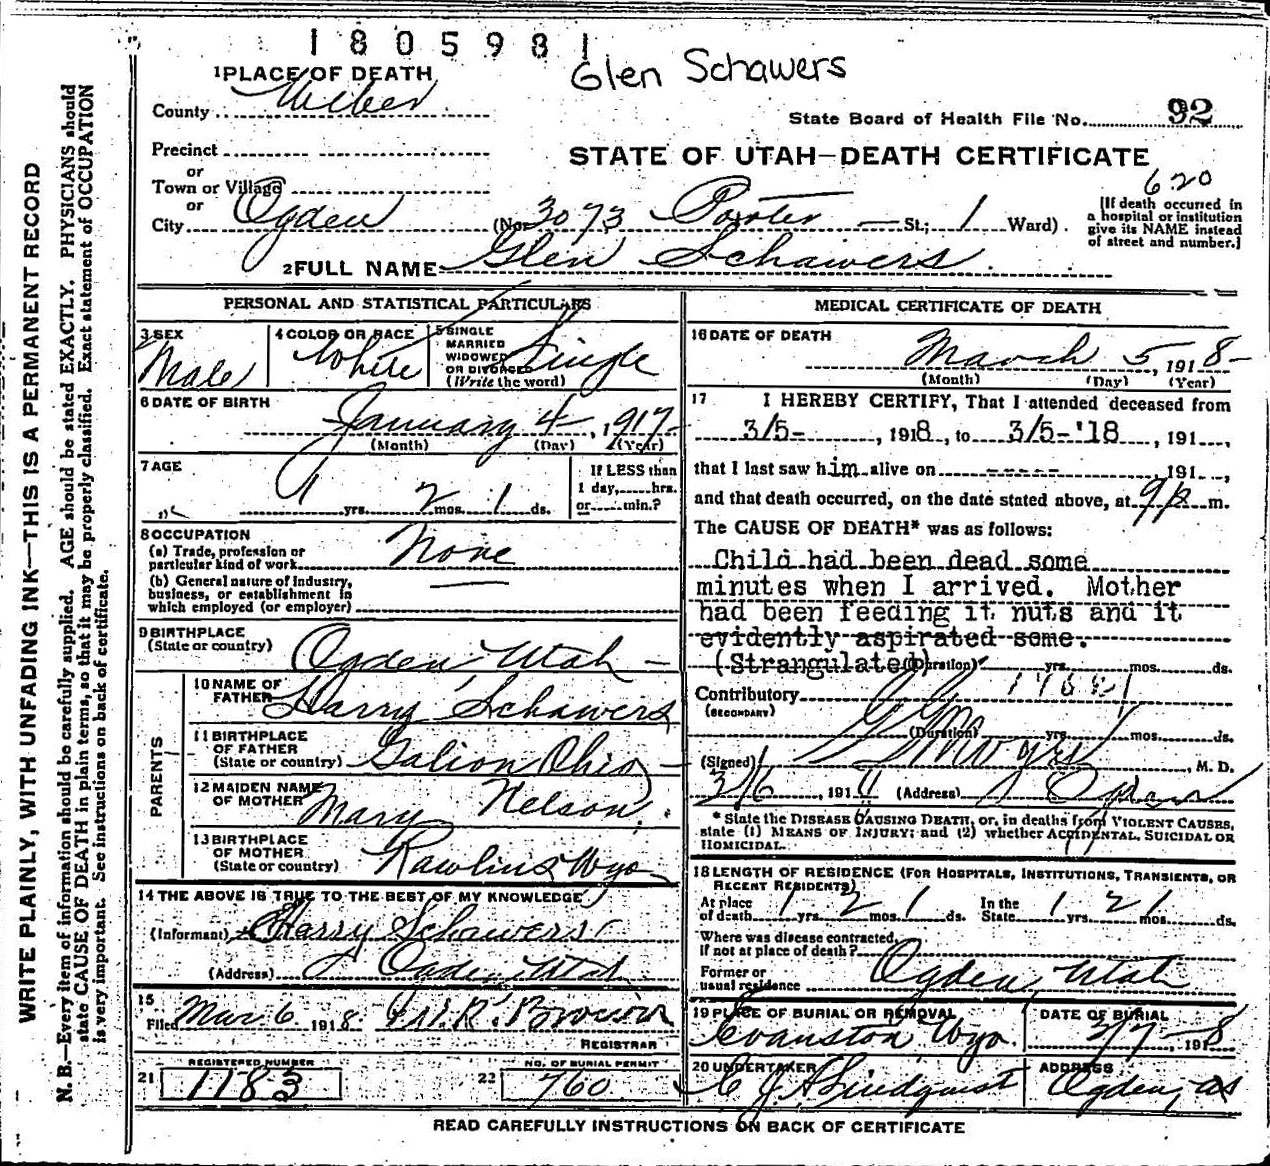 1805981
Glen Schawers
1 PLACE OF DEATH
County Weber
State Board of Health File No. 92
Precinct
STATE OF UTAH—DEATH CERTIFICATE
or
Town or Village
620
or
City Ogden (No. 3073 Porter St.; 1 Ward)
[If death occurred in
a hospital or institution
give its NAME instead
of street and number.]
2 FULL NAME Glen Schawers
PERSONAL AND STATISTICAL PARTICULARS
3 SEX Male
4 COLOR OR RACE White
5 SINGLE
MARRIED
WIDOWED
OR DIVORCED
(Write the word) Single
6 DATE OF BIRTH
January 4, 1917
(Month) (Day) (Year)
7 AGE
1 yrs. 2 mos. 1 ds.
If LESS than
1 day,.....hrs.
or.....min.?
8 OCCUPATION
(a) Trade, profession or
particular kind of work None
(b) General nature of Industry,
business, or establishment in
which employed (or employer)
9 BIRTHPLACE
(State or country) Ogden, Utah
PARENTS
10 NAME OF
FATHER Harry Schawers
11 BIRTHPLACE
OF FATHER
(State or country) Galion Ohio
12 MAIDEN NAME
OF MOTHER Mary Nelson
13 BIRTHPLACE
OF MOTHER
(State or country) Rawlins Wyo
14 THE ABOVE IS TRUE TO THE BEST OF MY KNOWLEDGE
(Informant) Harry Schawers
(Address) Ogden Utah
15
Filed Mar 6 1918 W. R. Brown
REGISTRAR
21 REGISTERED NUMBER 1183
22 NO. OF BURIAL PERMIT 760
MEDICAL CERTIFICATE OF DEATH
16 DATE OF DEATH
March 5, 1918
(Month) (Day) (Year)
17 I HEREBY CERTIFY, That I attended deceased from
3/5-, 1918, to 3/5-'18, 191...,
that I last saw him alive on -----, 191...,
and that death occurred, on the date stated above, at 9 p m.
The CAUSE OF DEATH* was as follows:
Child had been dead some
minutes when I arrived. Mother
had been feeding it nuts and it
evidently aspirated some.
(Strangulated) (Duration) yrs. mos. ds.
Contributory
(SECONDARY)
(Duration) yrs. mos. ds.
(Signed) , M. D.
3/6, 191 (Address) Ogden
* State the DISEASE CAUSING DEATH, or, in deaths from VIOLENT CAUSES,
state (1) MEANS OF INJURY; and (2) whether ACCIDENTAL, SUICIDAL OR
HOMICIDAL.
18 LENGTH OF RESIDENCE (FOR HOSPITALS, INSTITUTIONS, TRANSIENTS, OR
RECENT RESIDENTS)
At place
of death 1 yrs. 2 mos. 1 ds. In the
State 1 yrs. 2 1 mos. ds.
Where was disease contracted,
if not at place of death?
Former or
usual residence Ogden, Utah
19 PLACE OF BURIAL OR REMOVAL
Evanston Wyo.
DATE OF BURIAL
3/7, 1918
20 UNDERTAKER
C J Lindquist
ADDRESS
Ogden
READ CAREFULLY INSTRUCTIONS ON BACK OF CERTIFICATE
WRITE PLAINLY, WITH UNFADING INK—THIS IS A PERMANENT RECORD
N. B.—Every item of information should be carefully supplied. AGE should be stated EXACTLY. PHYSICIANS should
state CAUSE OF DEATH in plain terms, so that it may be properly classified. Exact statement of OCCUPATION
is very important. See instructions on back of certificate.